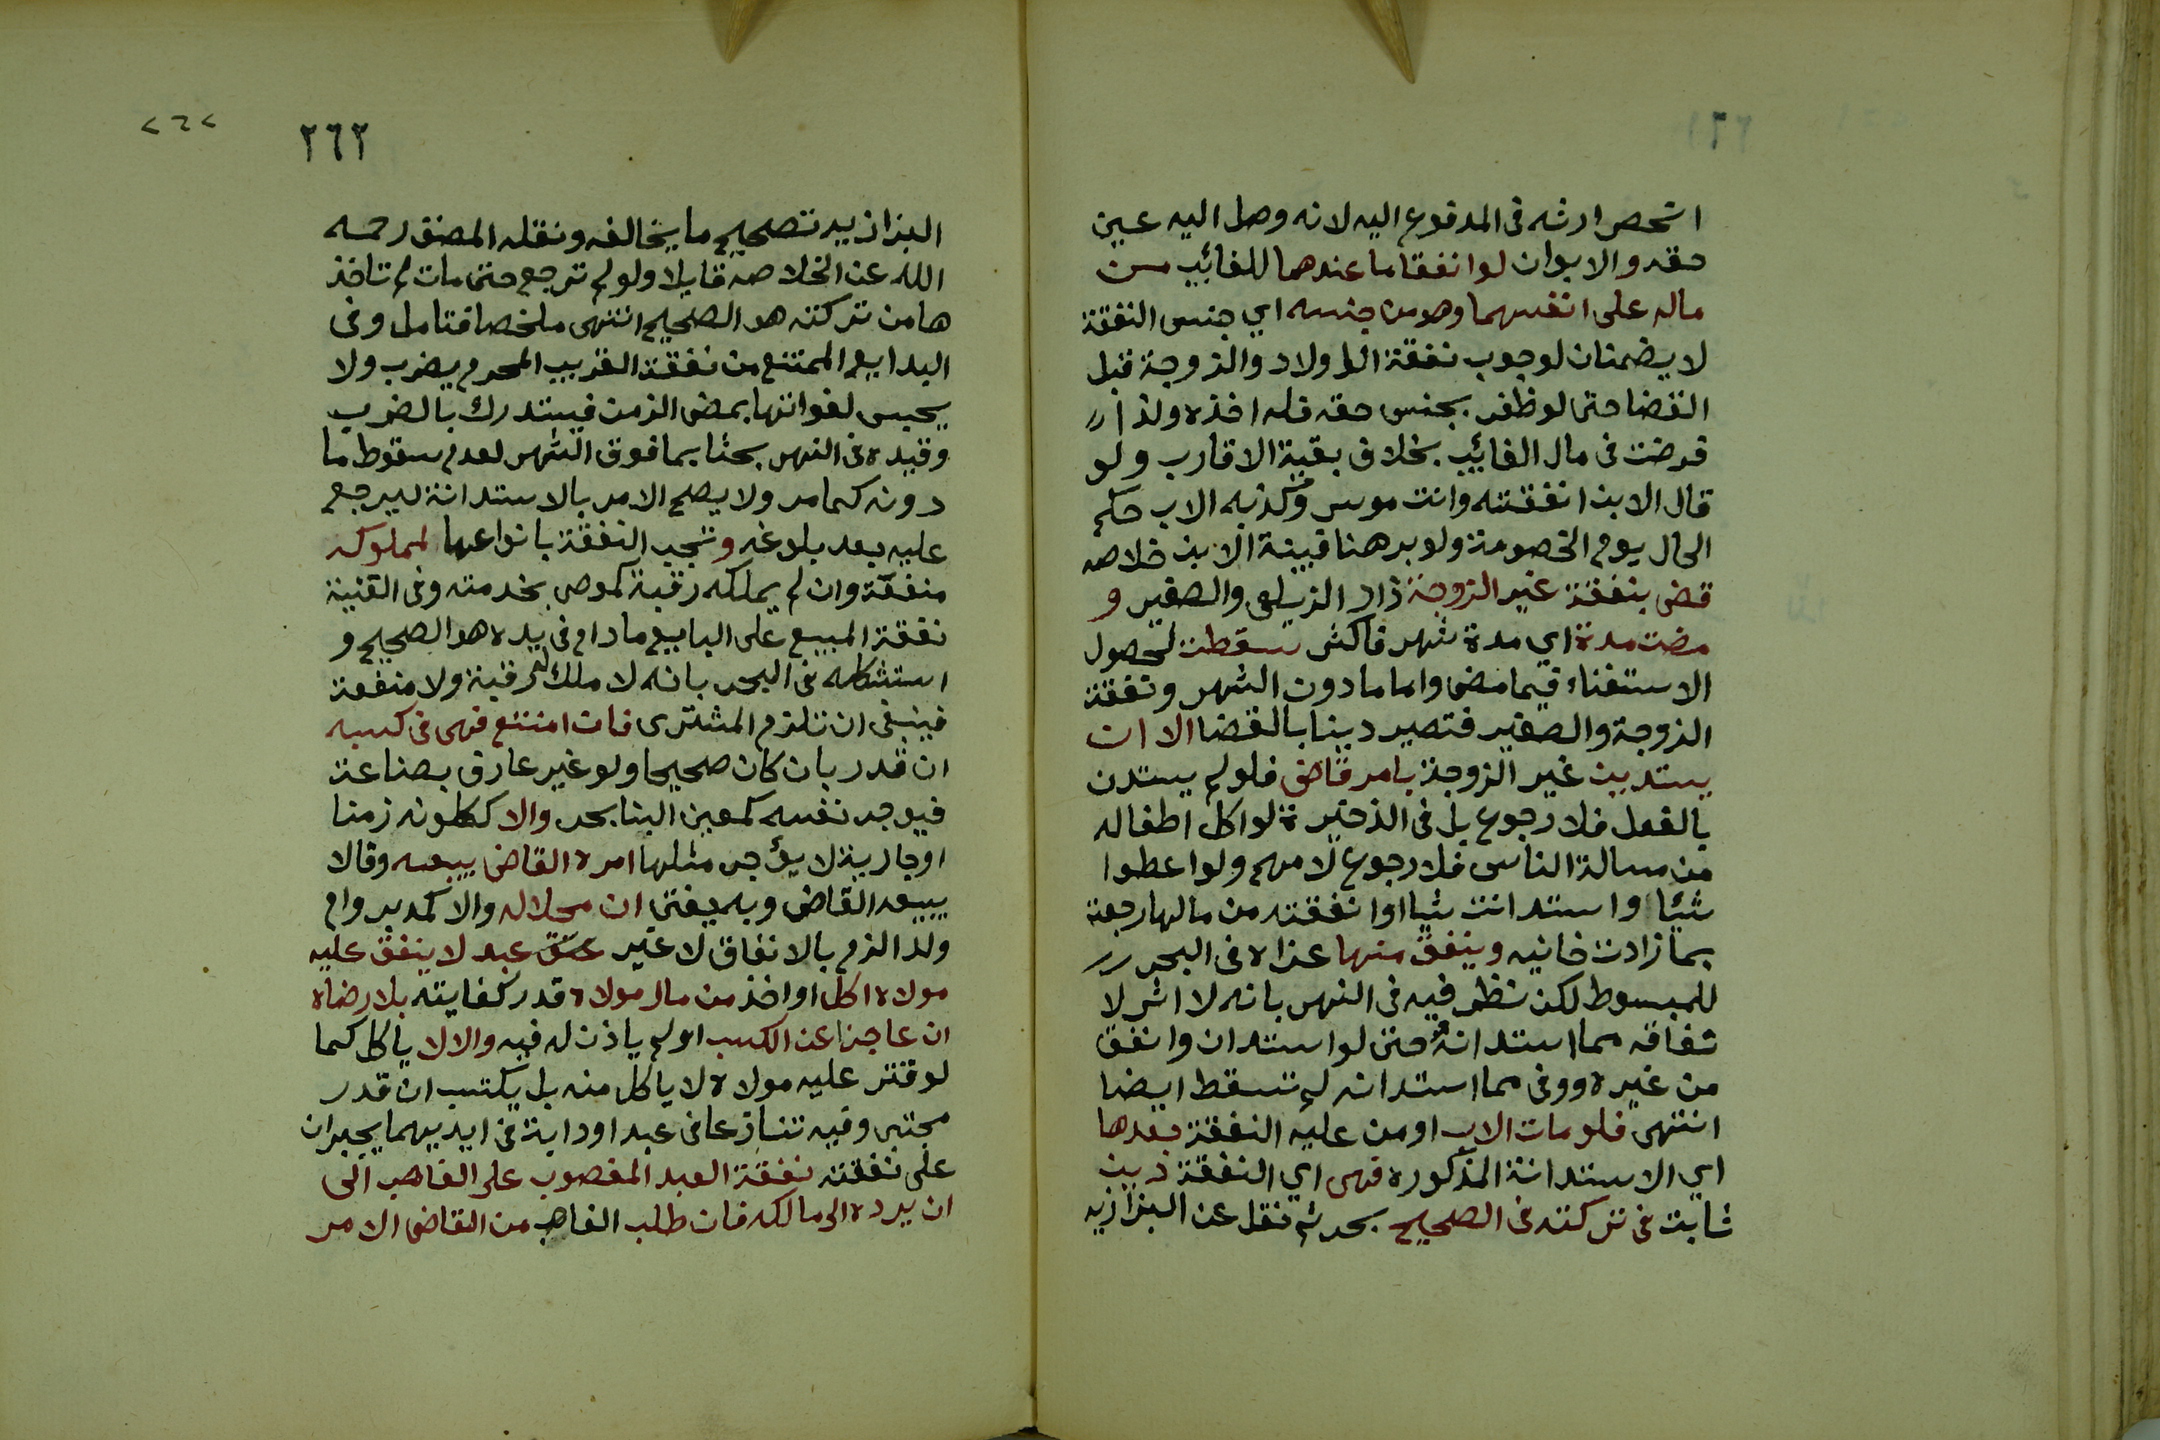 انحصر ارثه فى المدفوع اليه لانه وصل اليه عين
حقه والابوان لو انفقا ما عندهما للغائب من
ماله على انفسهما وهو من جنسه اي جنس النفقة
لا يضمنان لوجوب نفقة الاولاد والزوجة قبل
القضا حتى لو ظفر بجنس حقه فله اخذه ولذا
فرضت فى مال الغائب بخلاف بقية الاقارب ولو
قال الابن انفقته وانت موسر وكذبه الاب حكم
الحال يوم الخصومة ولو برهنا فبينة الابن خلاصه
قضى بنفقة غير الزوجة زاد الزيلعى والصغير و
مضت مدة اي مدة شهر فاكثر سقطت لحصول
الاستغناء فيما مضى واما مادون الشهر ونفقة
الزوجة والصغير فتصير دينا بالقضا الا ان
يستدين غير الزوجة بامر قاضى فلو لم يستدن
بالفعل فلا رجوع بل فى الذخيرة لو اكل اطفاله
من مسالة الناس فلا رجوع لامهم ولو اعطوا
شيئا واستدانت شيا او انفقته من مالها رجعة
بما زادت خانيه وينفق منها عزاه فى البحر
للمبسوط لكن نظر فيه فى النهر بانه لا اثر لا
نفاقه مما استدانه حتى لو استدان وانفق
من غيره ووفى مما استدانه لم تسقط ايضا
انتهى فلو مات الاب او من عليه النفقة بعدها
اي الاستدانة المذكوره فهى اي النفقة دين
ثابت فى تركته فى الصحيح بحر ثم نقل عن البزازيه
٢٦٢
٢٦٢
البزازيه تصحيح ما يخالفه ونقله المصنف رحمه
الله عن الخلاصة قايلا ولو لم ترجع حتى مات لم تاخذ
ها من تركته هو الصحيح انتهى ملخصا فتامل وفى
البدايع الممتنع من نفقة القريب المحرم يضرب ولا
يحبس لفواتها بمضى الزمن فيستدرك بالضرب
وقيده فى النهر بحثا بما فوق الشهر لعدم سقوط ما
دونه كما مر ولا يصح الامر بالاستدانة ليرجع
عليه بعد بلوغه وتجب النفقة بانواعها لمملوكه
منفعة وان لم يملكه رقبة كموصى بخدمته وفى القنية
نفقة المبيع على البايع مادام فى يده هو الصحيح و
استشكله فى البحر بانه لا ملك له رقبة ولا منفعة
فينبغى ان تلزم المشترى فان امتنع فهى فى كسبه
ان قدر بان كان صحيحا ولو غير عارف بصناعة
فيوجر نفسه كمعين البنا بحر والا ككونه زمنا
او جارية لا يؤجر مثلها امره القاضى ببيعه وقالا
يبيعه القاضى وبه يفتى ان محلا له والا كمدبر وام
ولد الزم بالانفاق لا غير عتق عبد لا ينفق عليه
مولاه اكل او اخذ من مال مولاه قدر كفايته بلا رضاه
ان عاجزا عن الكسب او لم ياذن له فيه والا لا ياكل كما
لو قتر عليه مولاه لا ياكل منه بل يكتسب ان قدر
مجتبى وفيه تنازعا فى عبد او دابة فى ايديهما يجبران
على نفقته نفقة العبد المغصوب على الغاصب الى
ان يرده الى مالكه فان طلب الغاصب من القاضى الامر